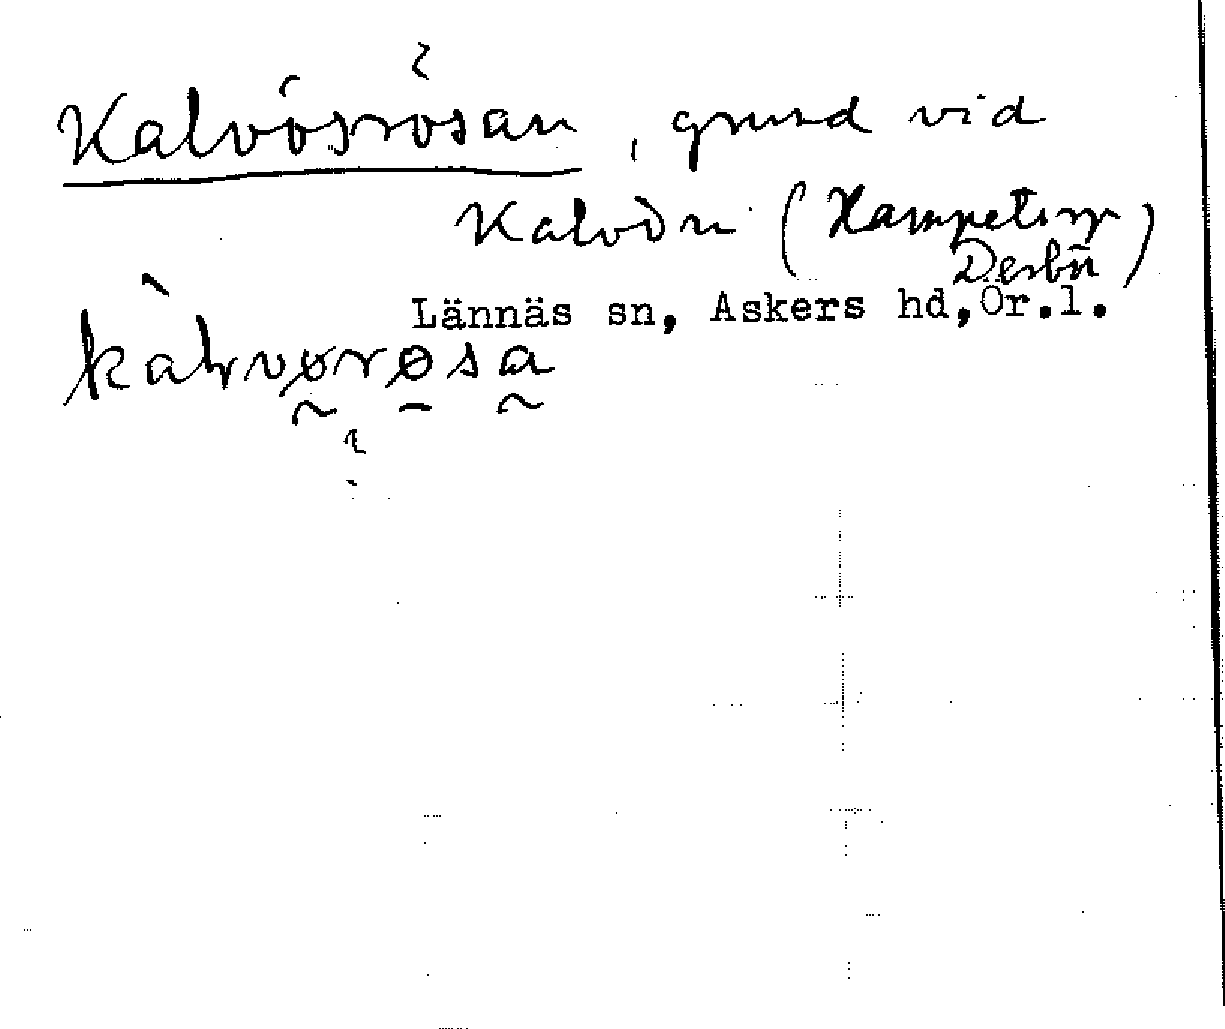 Kalvösrösan, grund vid
Kalvön (Hampetorp
Derbön)
Lännäs sn, Askers hd, Ör.l.
kàlvørøsa